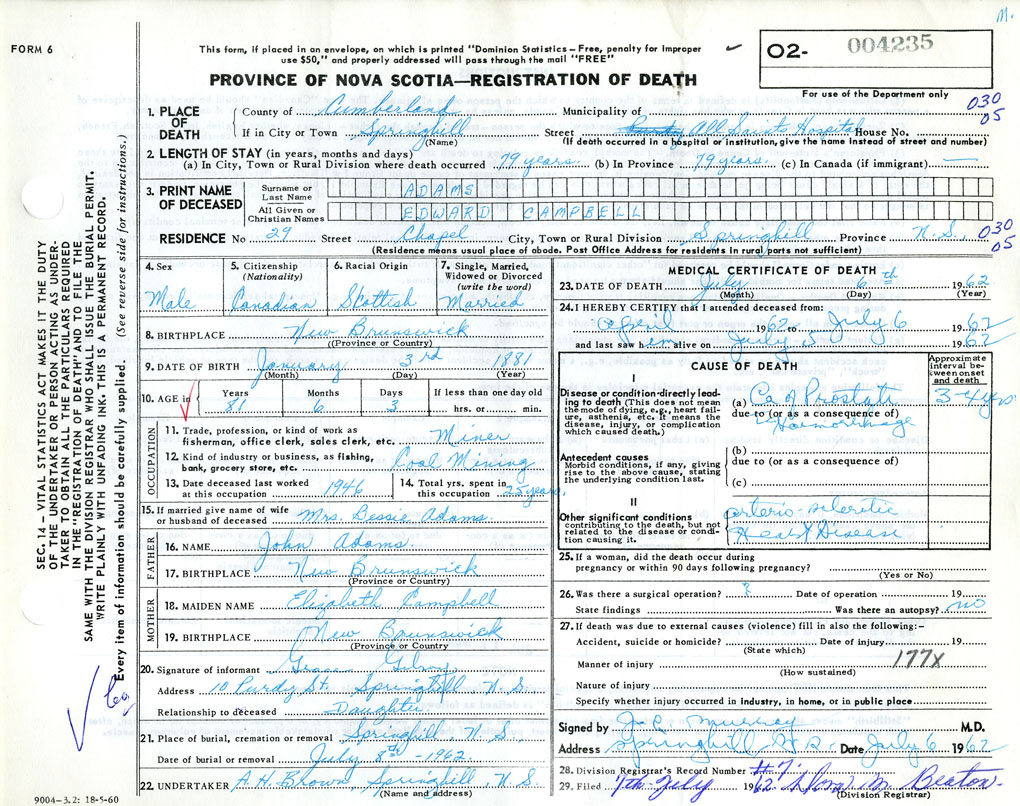 M.
FORM 6
This form, if placed in an envelope, on which is printed "Dominion Statistics–Free, penalty for improper
use $50," and properly addressed will pass through the mail "FREE"
O2- 004235
PROVINCE OF NOVA SCOTIA—REGISTRATION OF DEATH
For use of the Department only
030
05
1. PLACE OF DEATH
County of Cumberland Municipality of
If in City or Town Springhill Street All Saints Hospital House No.
(Name) (If death occurred in a hospital or institution, give the name instead of street and number)
2. LENGTH OF STAY (in years, months and days)
(a) In City, Town or Rural Division where death occurred 79 years. (b) In Province 79 years. (c) In Canada (if immigrant) —
3. PRINT NAME OF DECEASED
Surname or Last Name ADAMS
All Given or Christian Names EDWARD CAMPBELL
RESIDENCE No 29 Street Chapel City, Town or Rural Division Springhill Province N.S. 030
05
(Residence means usual place of abode. Post Office Address for residents in rural parts not sufficient)
4. Sex
Male
5. Citizenship
(Nationality)
Canadian
6. Racial Origin
Scottish
7. Single, Married,
Widowed or Divorced
(write the word)
Married
8. BIRTHPLACE New Brunswick
((Province or County)
9. DATE OF BIRTH January 3rd 1881
(Month) (Day) (Year)
10. AGE in
Years Months Days If less than one day old
81 6 3 hrs. or min.
OCCUPATION
11. Trade, profession, or kind of work as
fisherman, office clerk, sales clerk, etc. Miner
12. Kind of industry or business, as fishing,
bank, grocery store, etc. Coal Mining
13. Date deceased last worked
at this occupation 1946
14. Total yrs. spent in
this occupation 25 years.
15. If married give name of wife
or husband of deceased Mrs. Bessie Adams.
FATHER
16. NAME John Adams.
17. BIRTHPLACE New Brunswick
(Province or Country)
MOTHER
18. MAIDEN NAME Elizabeth Campbell
19. BIRTHPLACE New Brunswick
(Province or Country
20. Signature of informant
Address 10 Purdy St. Springhill, N.S.
Relationship to deceased Daughter
21. Place of burial, cremation or removal Springhill N.S
Date of burial or removal July 8th -1962
22. UNDERTAKER A.H. Brown, Springhill, N.S
(Name and address)
MEDICAL CERTIFICATE OF DEATH
23. DATE OF DEATH July 6th 1962
(Month) (Day) (Year)
24. I HEREBY CERTIFY that I attended deceased from:
April 1962 to July 6 1962
and last saw him alive on July 5 1962
CAUSE OF DEATH
Approximate
interval between onset
and death
I
Disease or condition directly leading to death (This does not mean
the mode of dying, e.g., heart failure, asthenia, etc. It means the
disease, injury, or complication
which caused death.)
(a) Ca of Prostate 3-4 yrs
due to (or as a consequence of)
Haemorrhage
Antecedent causes
Morbid conditions, if any, giving
rise to the above cause, stating
the underlying condition last.
(b)
due to (or as a consequence of)
(c)
II
Other significant conditions
contributing to the death, but not
related to the disease or condition causing it.
arterio-sclerotic
Heart Disease
25. If a woman, did the death occur during
pregnancy or within 90 days following pregnancy?
(Yes or No)
26. Was there a surgical operation? ? Date of operation 19
State findings Was there an autopsy? no
27. If death was due to external causes (violence) fill in also the following:–
Accident, suicide or homicide? Date of injury 19
(State which)
Manner of injury 177X
(How sustained)
Nature of injury
Specify whether injury occurred in industry, in home, or in public place
Signed by J.P. Murray M.D.
Address Springhill N.S. Date July 6 1962
28. Division Registrar's Record Number #7
29. Filed 7th July 1962 M. Beaton
(Division Registrar)
SEC. 14 – VITAL STATISTICS ACT MAKES IT THE DUTY
OF THE UNDERTAKER OR PERSON ACTING AS UNDERTAKER TO OBTAIN ALL THE PARTICULARS REQUIRED
IN THE "REGISTRATION OF DEATH" AND TO FILE THE
SAME WITH THE DIVISION REGISTRAR WHO SHALL ISSUE THE BURIAL PERMIT.
WRITE PLAINLY WITH UNFADING INK. THIS IS A PERMANENT RECORD.
Every item of information should be carefully supplied. (See reverse side for instructions.)
9004-3.2: 18-5-60